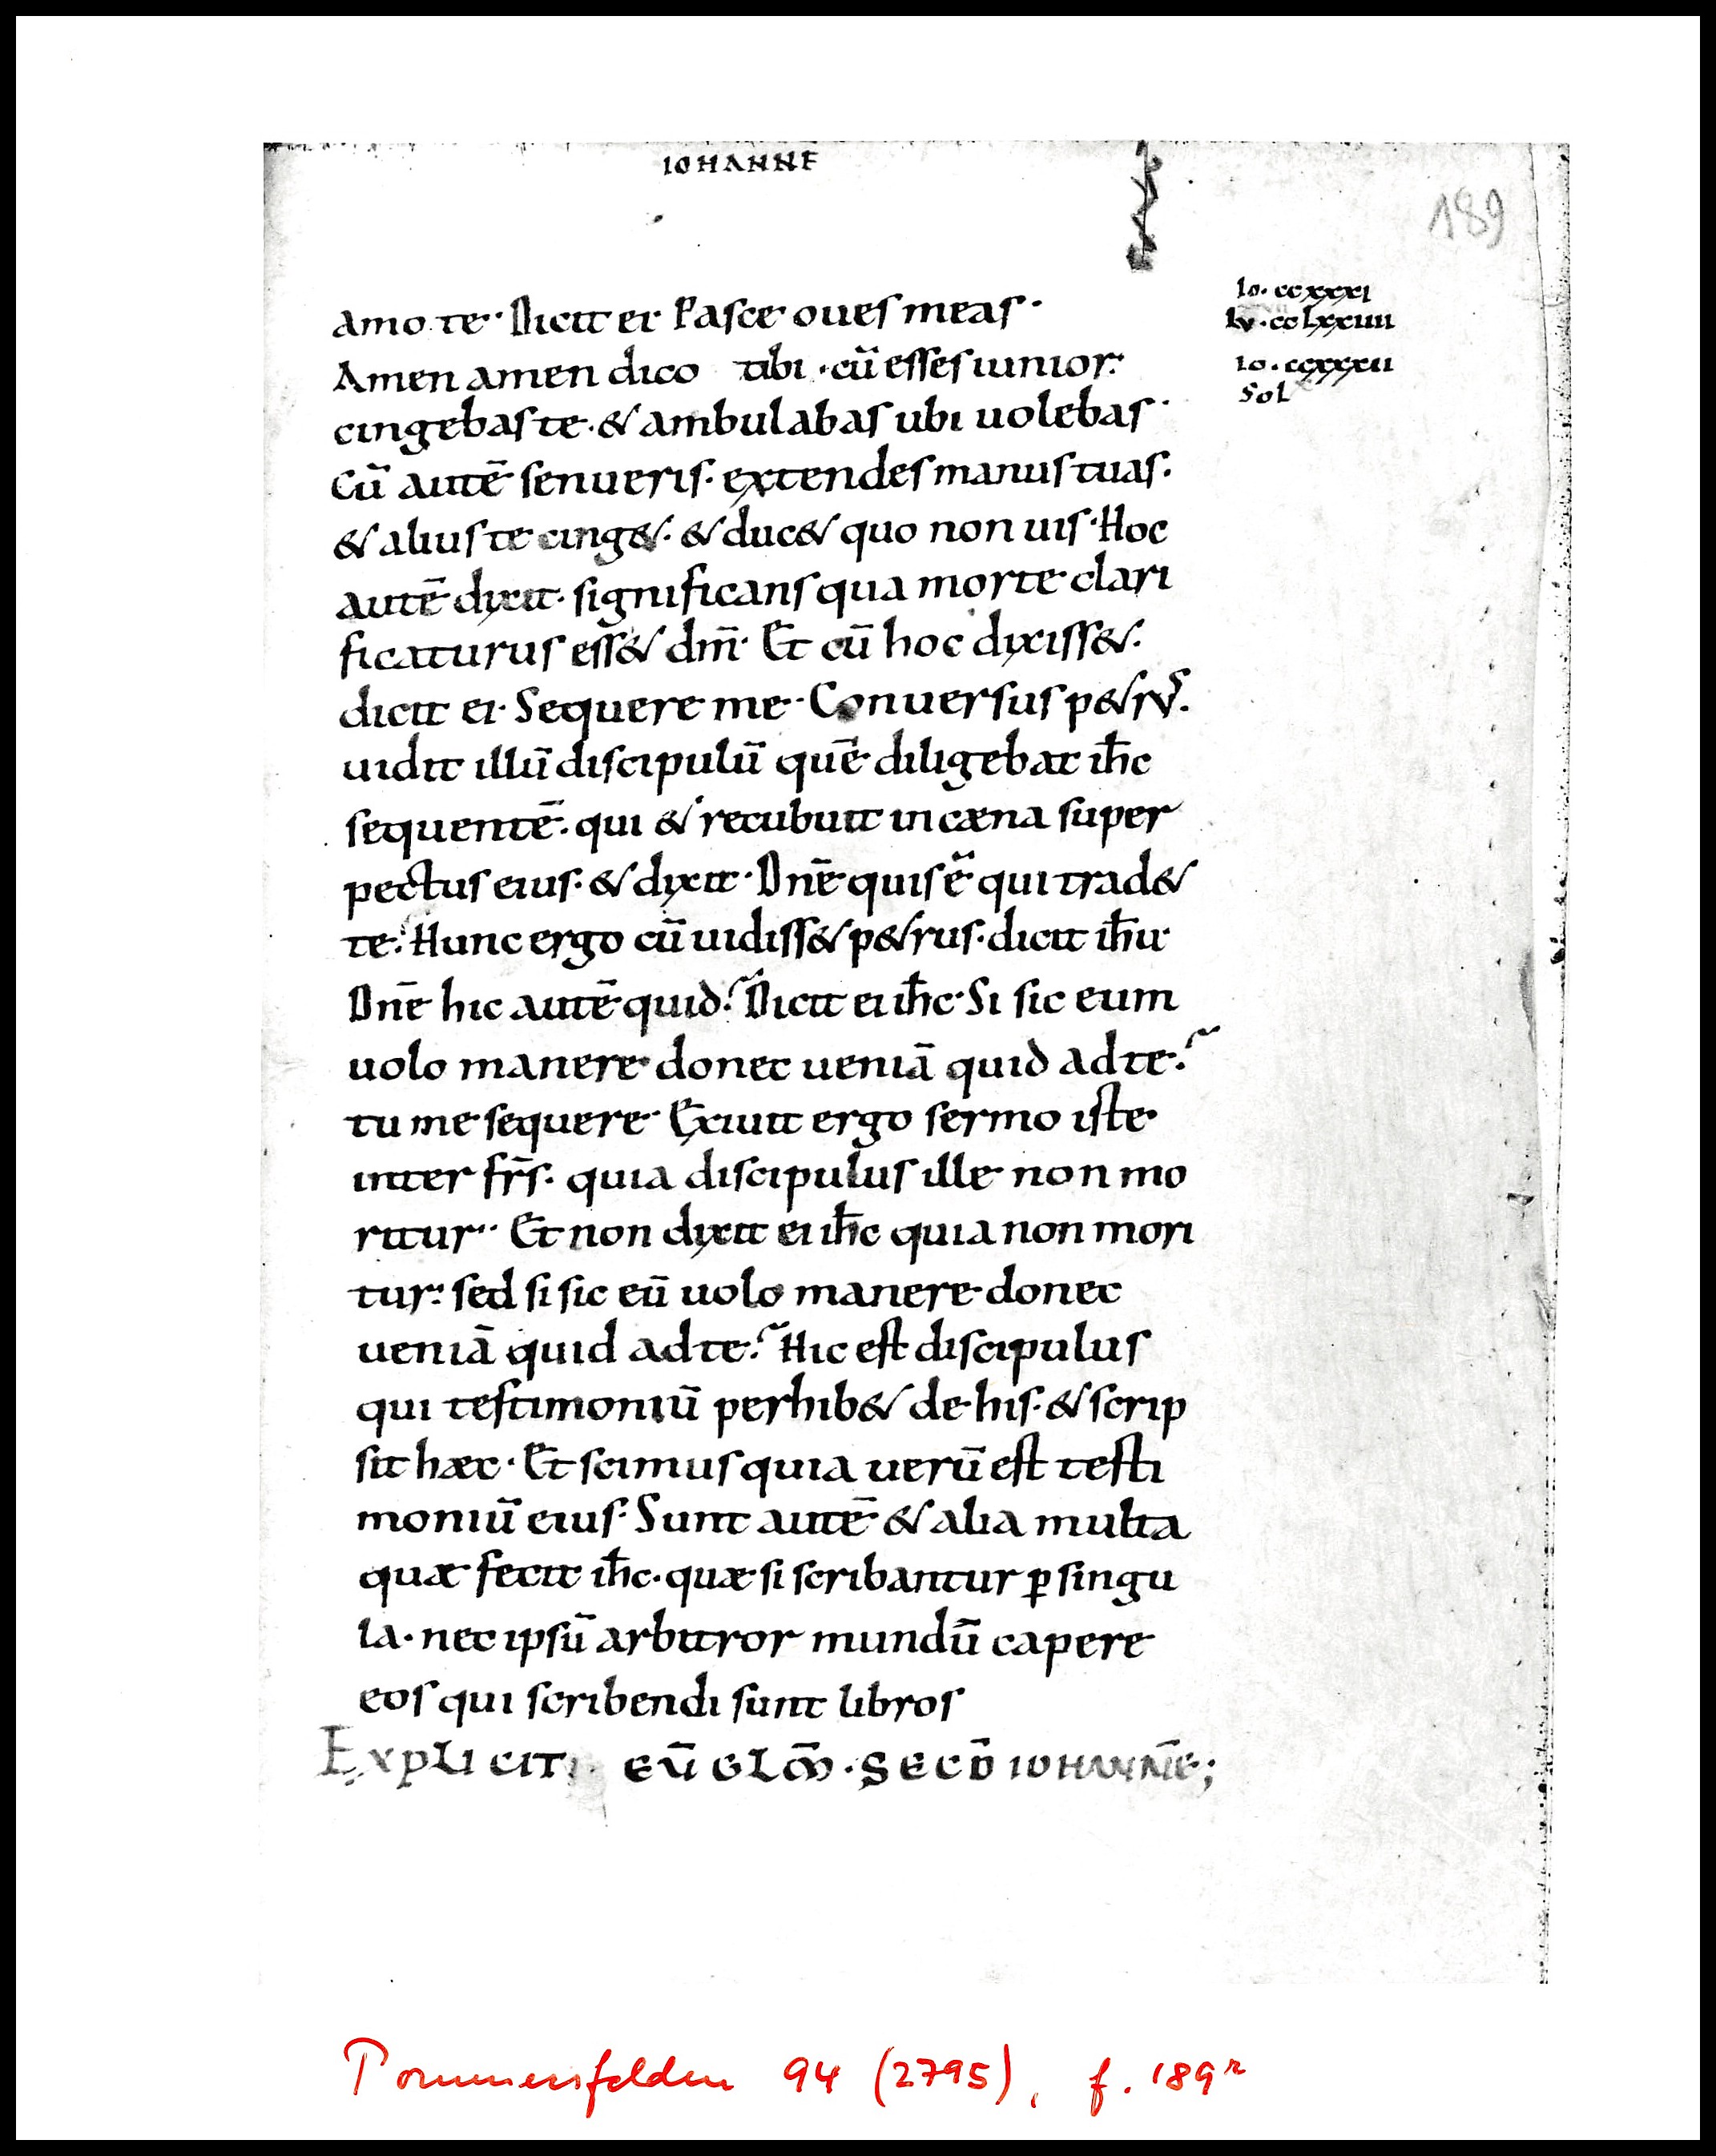 IOHANNE
189
amo te· Dicit ei Pasce oues meas·
Io· ccxxxi
Lv· cclxxiiii
Amen amen dico tibi· cū esses iunior·
Io· ccxxxii
Sol
cingebas te· & ambulabas ubi uolebas·
Cū autē senueris· extendes manus tuas·
& alius te cing&· & duc& quo non uis· Hoc
autē dixit· significans qua morte clari
ficaturus ess& dm̄· Et cū hoc dixiss&·
dicit ei· Sequere me· Conuersus p&rus·
uidit illū discipulū quē diligebat ih̄c
sequentē· qui & recubuit in cæna super
pectus eius· & dixit· Dn̄e quis ē qui trad&
te? Hunc ergo cū uidiss& p&rus· dicit ih̄u
Dn̄e hic autē quid? Dicit ei ih̄c· Si sic eum
uolo manere donec ueniā quid ad te?
tu me sequere· Exiuit ergo sermo iste
inter fr̄s· quia discipulus ille non mo
ritur· Et non dixit ei ih̄c quia non mori
tur· sed si sic eū uolo manere donec
ueniā quid ad te? Hic est discipulus
qui testimoniū perhib& de his· & scrip
sit hæc· Et scimus quia uerū est testi
moniū eius· Sunt autē & alia multa
quæ fecit ih̄c· quæ si scribantur ꝑ singu
la· nec ipsū arbitror mundū capere
eos qui scribendi sunt libros
EXPLICIT· EŪGLM̄· SECD̄ IOHANNĒ;
Pommersfelden 94 (2795), f. 189r